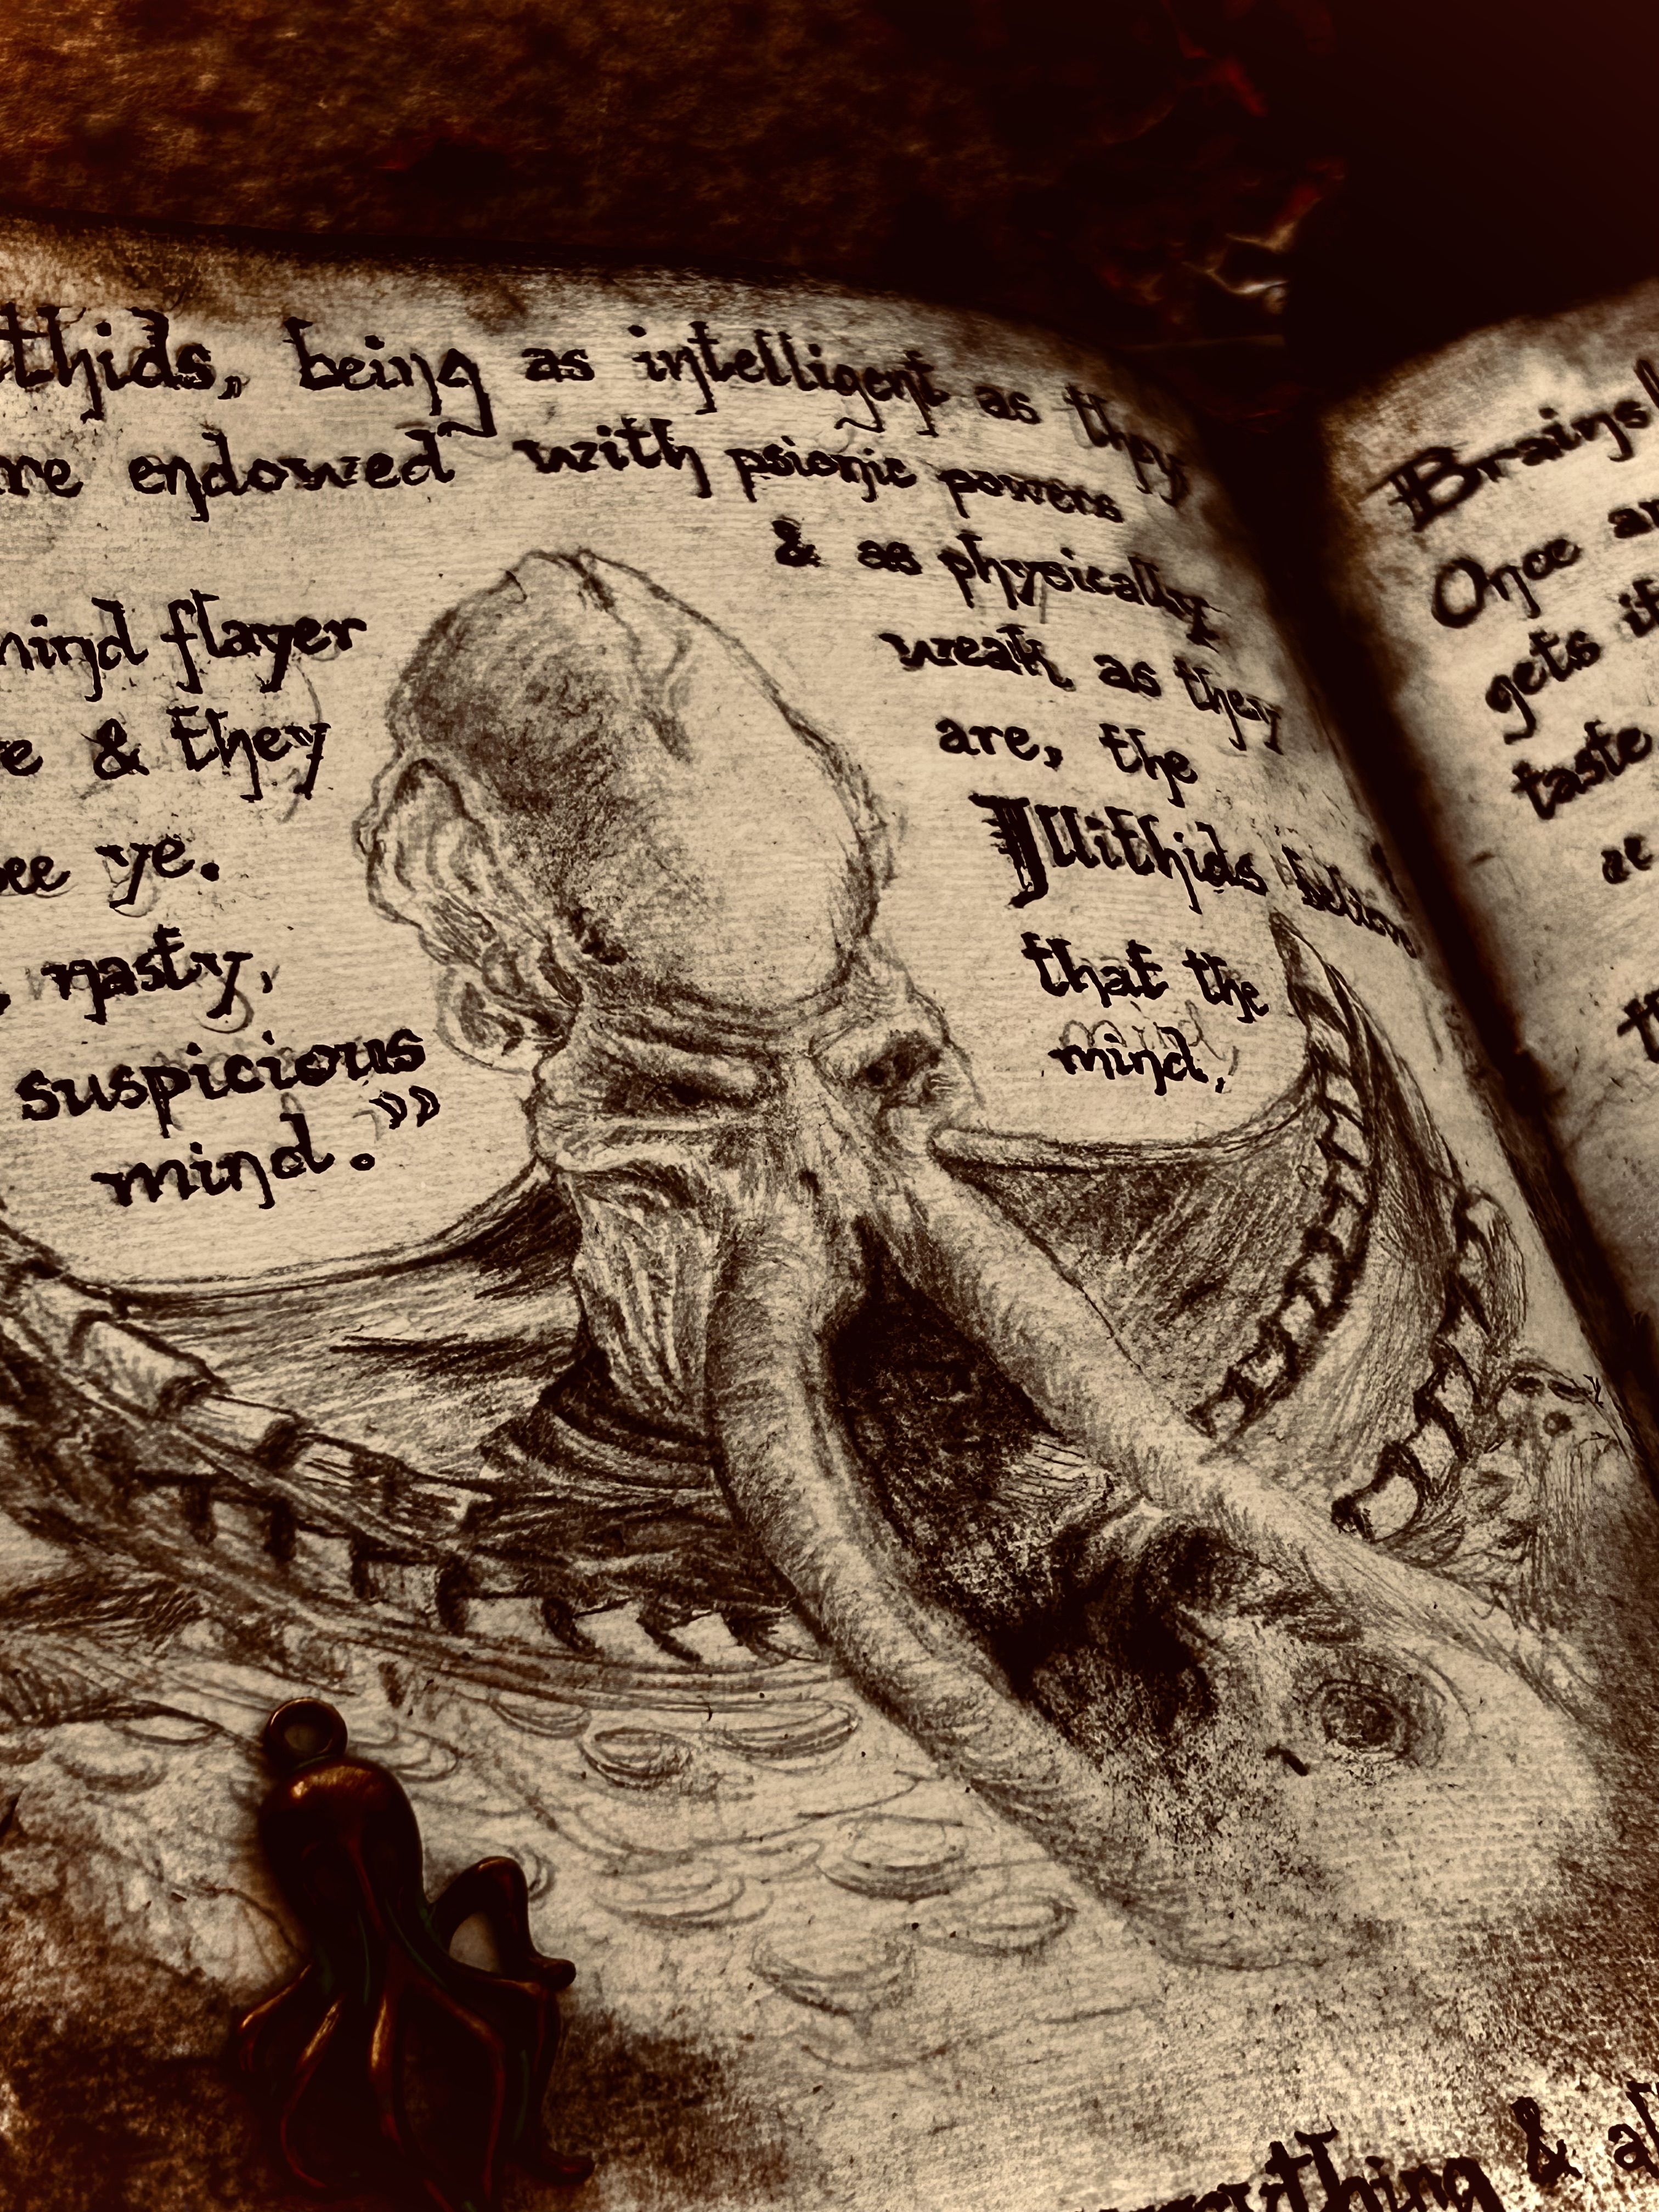 thids, being as intelligent as they
re endowed with psionic powers
& as physically
weak as they
are, the
Illithids believe
that the
mind,
mind flayer
e & they
ee ye.
, nasty,
suspicious
mind.”
Brains!
Once an
gets it
taste
erything & al